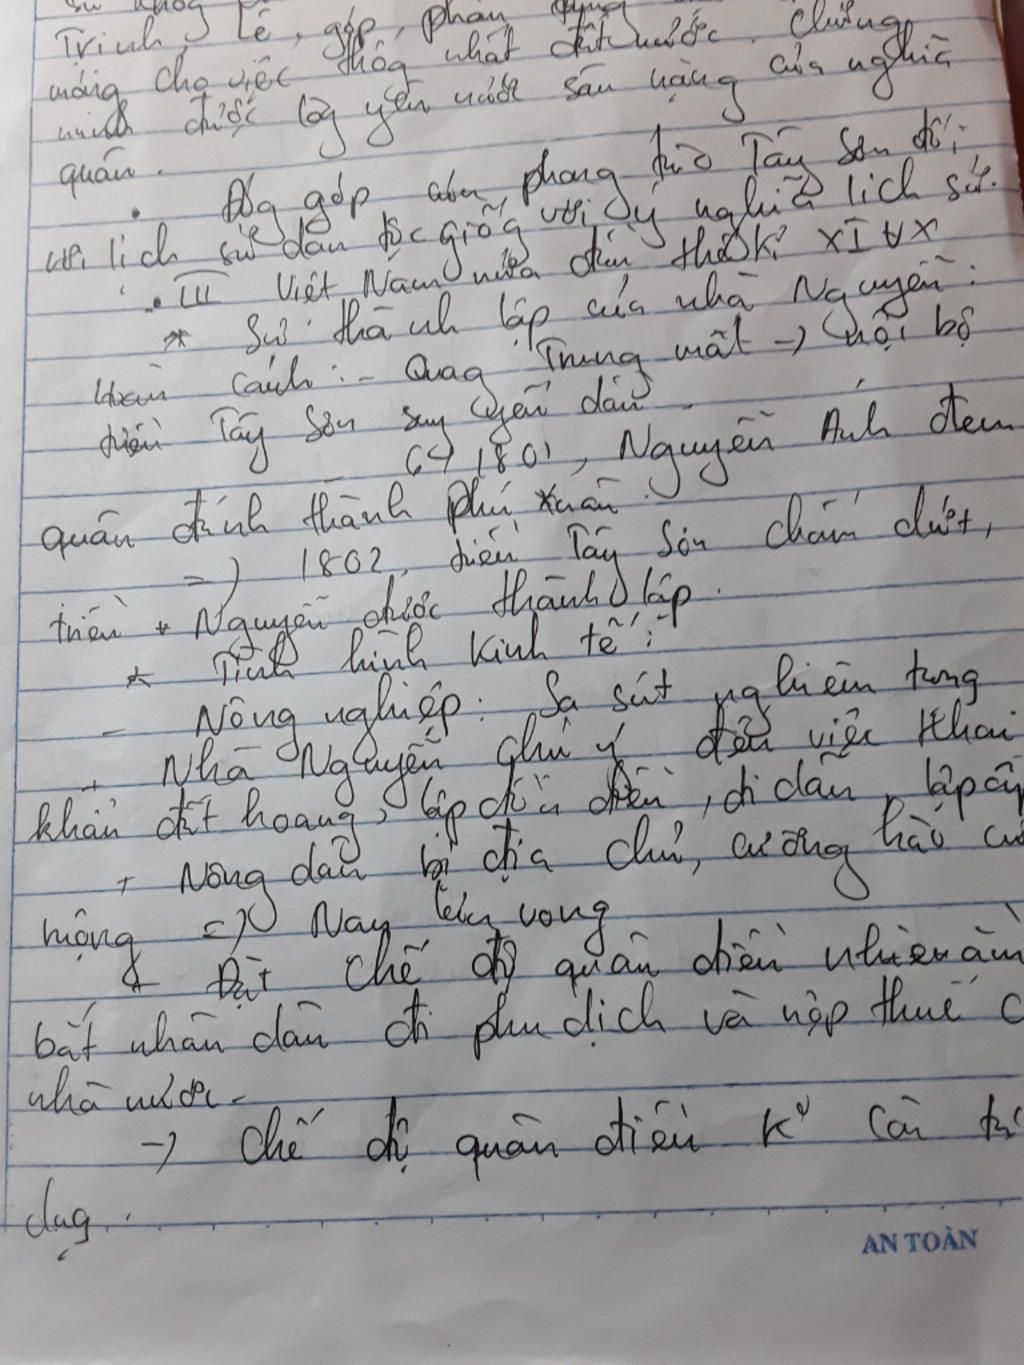 Trịnh, Lê, góp phần
móng cho việc thốg nhất đất nước. Chứng
minh được lòg yêu nước sâu nặng của nghĩa
quân.
. Đóg góp của phong trào Tây Sơn đối
với lịch sử dân tộc giốg với ý nghĩa lịch sử.
. III Việt Nam nửa đầu thế kỉ XIVX
* Sự thành lập của nhà Nguyễn:
Hoàn cảnh: - Quag Trung mất -> nội bộ
triều Tây Sơn suy yếu dần.
1801, Nguyễn Ánh đem
quân đánh thành Phú Xuân.
=> 1802, triều Tây Sơn chấm dứt,
triều Nguyễn được thành lập.
* Tình hình kinh tế:
- Nông nghiệp: Sa sút nghiêm trọng
+ Nhà Nguyễn chú ý đến việc khai
khẩn đất hoang, lập đồn điền, di dân, lập ấp
+ Nông dân bị địa chủ, cường hào
ruộng => Nạn lưu vong
+ Đặt chế độ quân điền nhằm
bắt nhân dân đi phu dịch và nộp thuế
nhà nước.
-> Chế độ quân điền k° còn
dụg.
AN TOÀN